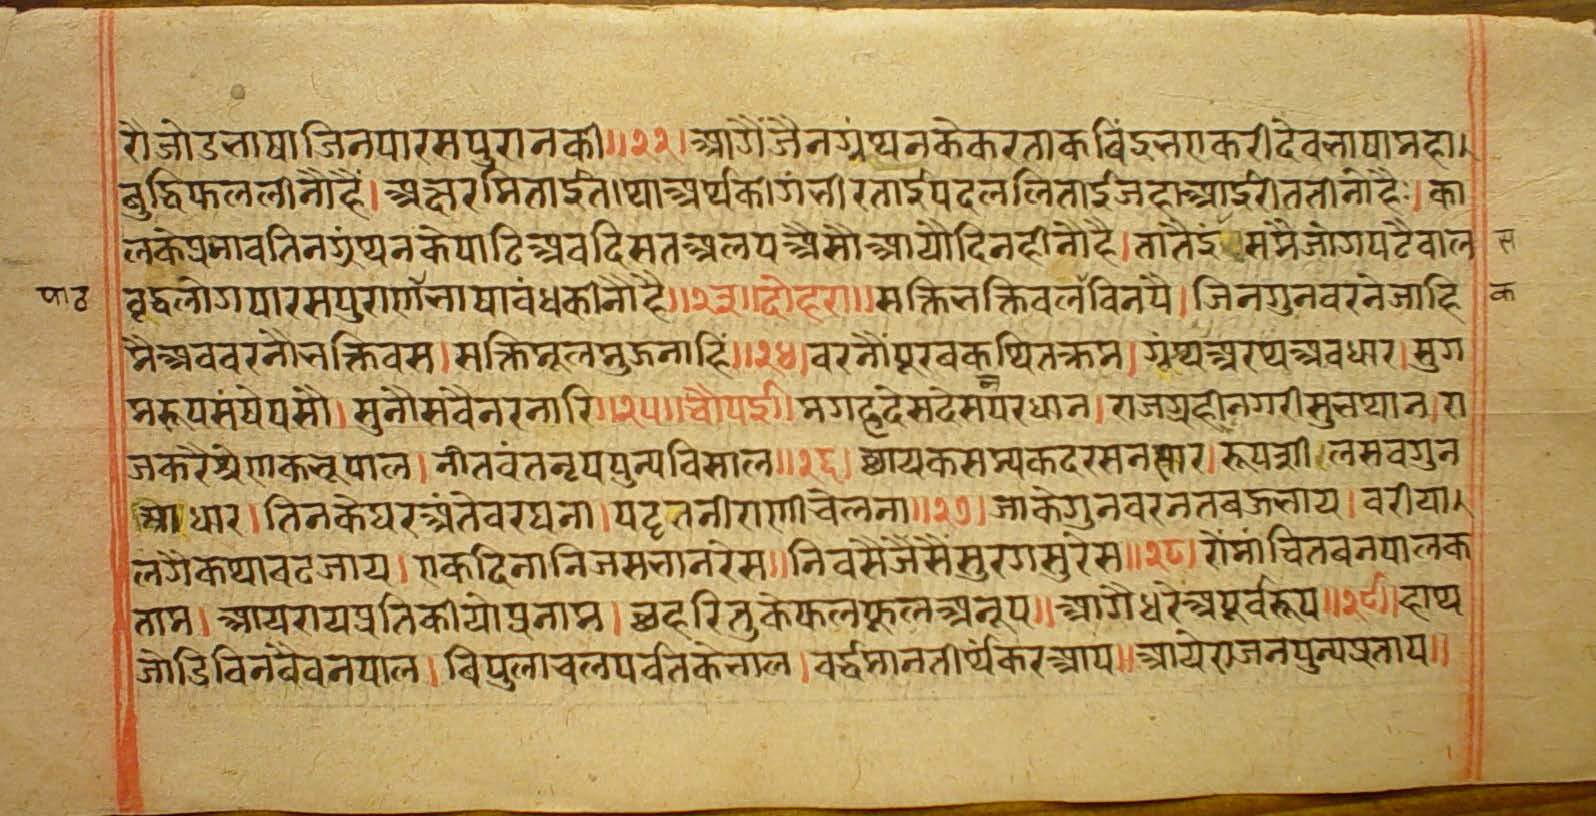 रौजोडभाषाजिनपारसपुरानकी॥२२।आगैंजैनग्रंथनकेकरताकविंद्रभएकरीदेवभाषामहा।
बुद्धिफललीनौहैं।अक्षरमिताईतथाअर्थकीगंभीरताईपदललिताईजहाआईरीततीनोहै:।का
लकेप्रभावतिनग्रंथनकेपाटिअवदिसतअलपअैसौआयौदिनहीनौहै।तातैइंसमैजोगपढैवाल
स
पाठ
वृद्धलोगपारसपुराणभाषावंधकीनौहै॥२३॥दोहरा॥सक्तिभक्तिवलविनपै।जिनगुनवरनेजाहि
क
मैअववरनौभक्तिवस।सक्तिमूलमुजनाहिं॥२४।वरनौंपूरवकथितक्रम।ग्रंथअरथअवधार।सुग
मरूपसंषेपसौ।सुनौसवैनरनारि॥२५॥चौपई॥मगहदेसदेसपरधान।राजग्रहीनगरीसुभथान।रा
जकरैश्रेणकभूपाल।नीतवंतनृपपुन्यविसाल॥२६।छायकसम्यकदरसनसार।रूपशीलसवगुन
आधार।तिनकैघरअंतेवरघना।पटृतनीराणीचेलना॥२७।जाकेगुनवरनतबजभाय।वरीया।
लगैकथावढजाय।एकदिनानिजसभानरेस॥निवसैजैसैंसुरगसुरेस॥२८।रोमांचितबनपालक
ताम।आयरायप्रतिकीयोप्रनाम।छहरितुकेफलफूलअनूप॥आगैधरेअपूर्वरूप॥२९।हाथ
जोडिविनवैवनपाल।विपुलाचलपर्वतकेभाल।वर्द्धमानतीर्थंकरआप॥आयेराजनपुन्यप्रताप॥